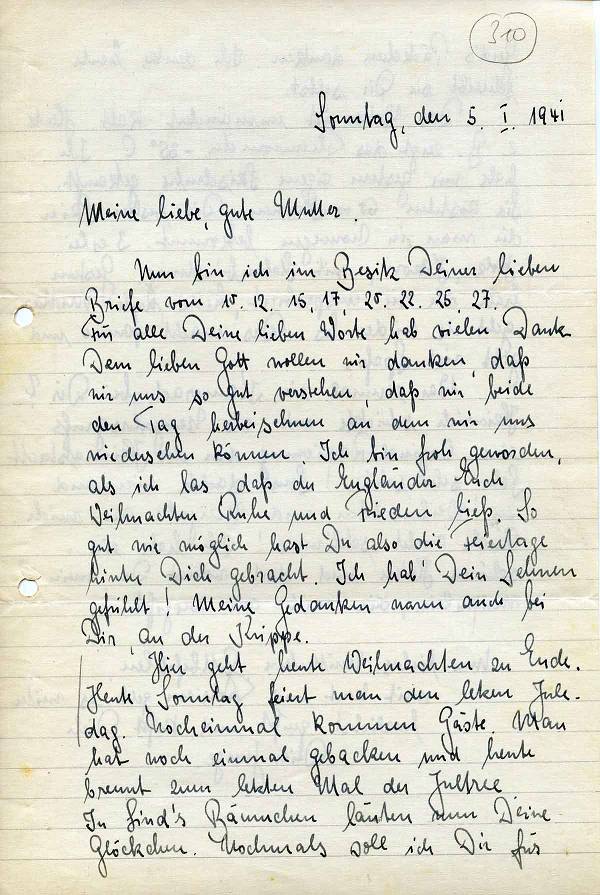 310
Sonntag, den 5. I. 1941
Meine liebe, gute Mutter.
Nun bin ich im Besitz Deiner lieben
Briefe vom 10. 12. 15. 17, 20. 22. 25, 27.
Für alle Deine lieben Worte hab vielen Dank
Dem lieben Gott wollen wir danken, daß
wir uns so gut verstehen, daß wir beide
den Tag herbeisehnen an dem wir uns
wiedersehen können. Ich bin froh geworden,
als ich las daß der Engländer Euch
Weihnachten Ruhe und Frieden ließ. So
gut wie möglich hast Du also die Feiertage
hinter Dich gebracht. Ich hab' Dein Sehnen
gefühlt! Meine Gedanken waren auch bei
Dir, an der Krippe.
Hier geht heute Weihnachten zu Ende.
Heute, Sonntag feiert man den letzen Jule-
dag. Nocheinmal kommen Gäste. Man
hat noch einmal gebacken und heute
brennt zum letzten Mal der Jultree.
In Lind's Bäumchen läuten nun Deine
Glöckchen. Nochmals soll ich Dir fürs